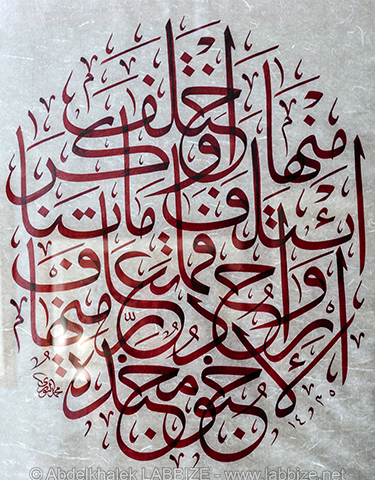 الأرواح جنود مجندة
فما تعارف منها
ائتلف وما تناكر
منها اختلف
© Abdelkhalek LABBIZE - www.labbize.net